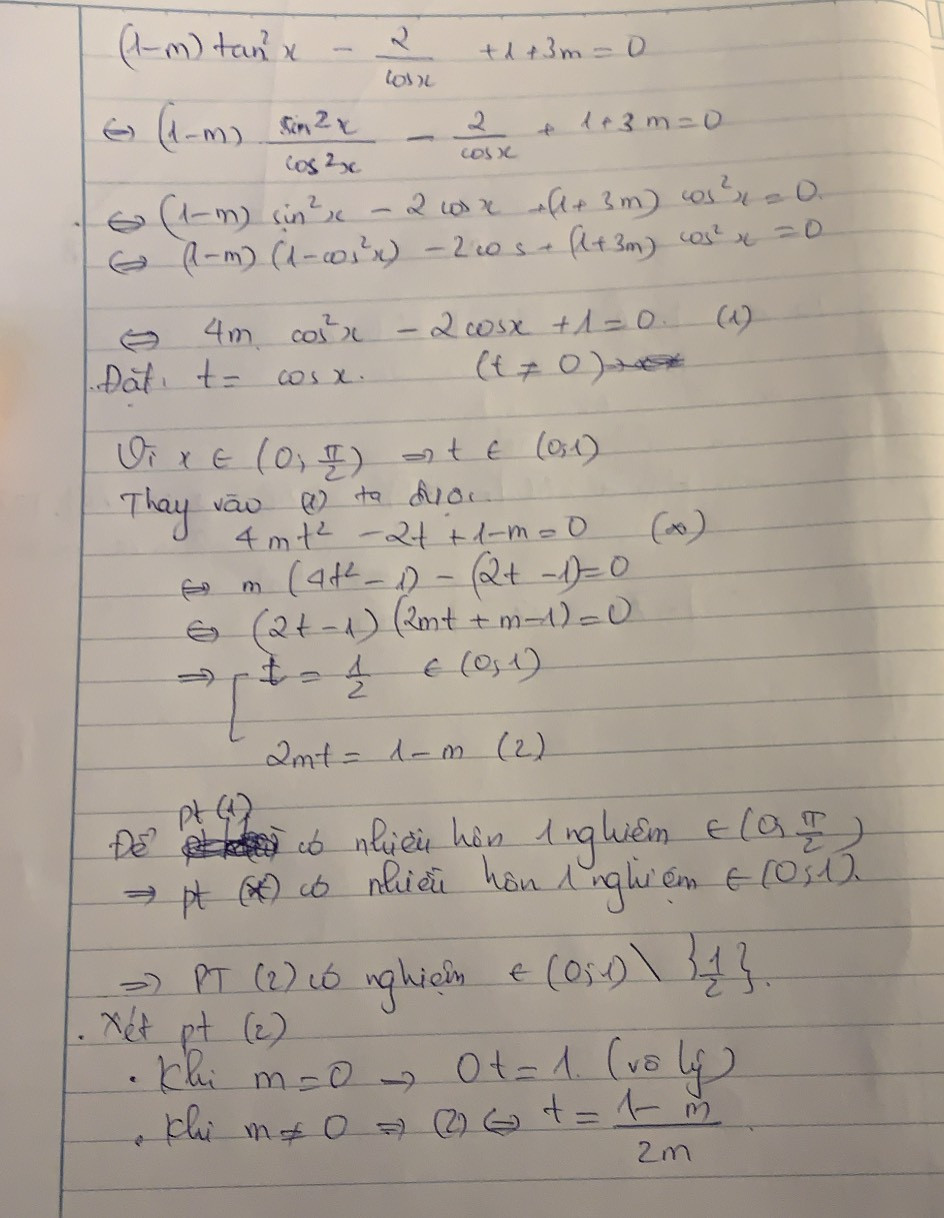 (1-m) tan²x - 2/cosx + 1 + 3m = 0
⇔ (1-m) sin²x/cos²x - 2/cosx + 1 + 3m = 0
. ⇔ (1-m) sin²x - 2cosx + (1+3m) cos²x = 0.
⇔ (1-m) (1-cos²x) - 2cos + (1+3m) cos²x = 0
⇔ 4m cos²x - 2cosx + 1 = 0. (1)
. Đặt. t = cosx. (t ≠ 0)
Vì x ∈ (0; π/2) ⇒ t ∈ (0;1)
Thay vào (1) ta được.
4mt² - 2t + 1 - m = 0 (∞)
⇔ m (4t² - 1) - (2t - 1) = 0
⇔ (2t - 1) (2mt + m - 1) = 0
⇒ [ t = 1/2 ∈ (0;1)
2mt = 1 - m (2)
pt (1)
Để có nhiều hơn 1 nghiệm ∈ (0; π/2)
⇒ pt (*) có nhiều hơn 1 nghiệm ∈ (0;1).
⇒ PT (2) có nghiệm ∈ (0;1) \ {1/2}.
. Xét pt (2)
. Khi m = 0 → 0t = 1. (vô lý)
. Khi m ≠ 0 ⇒ (2) ⇔ t = 1 - m/2m.